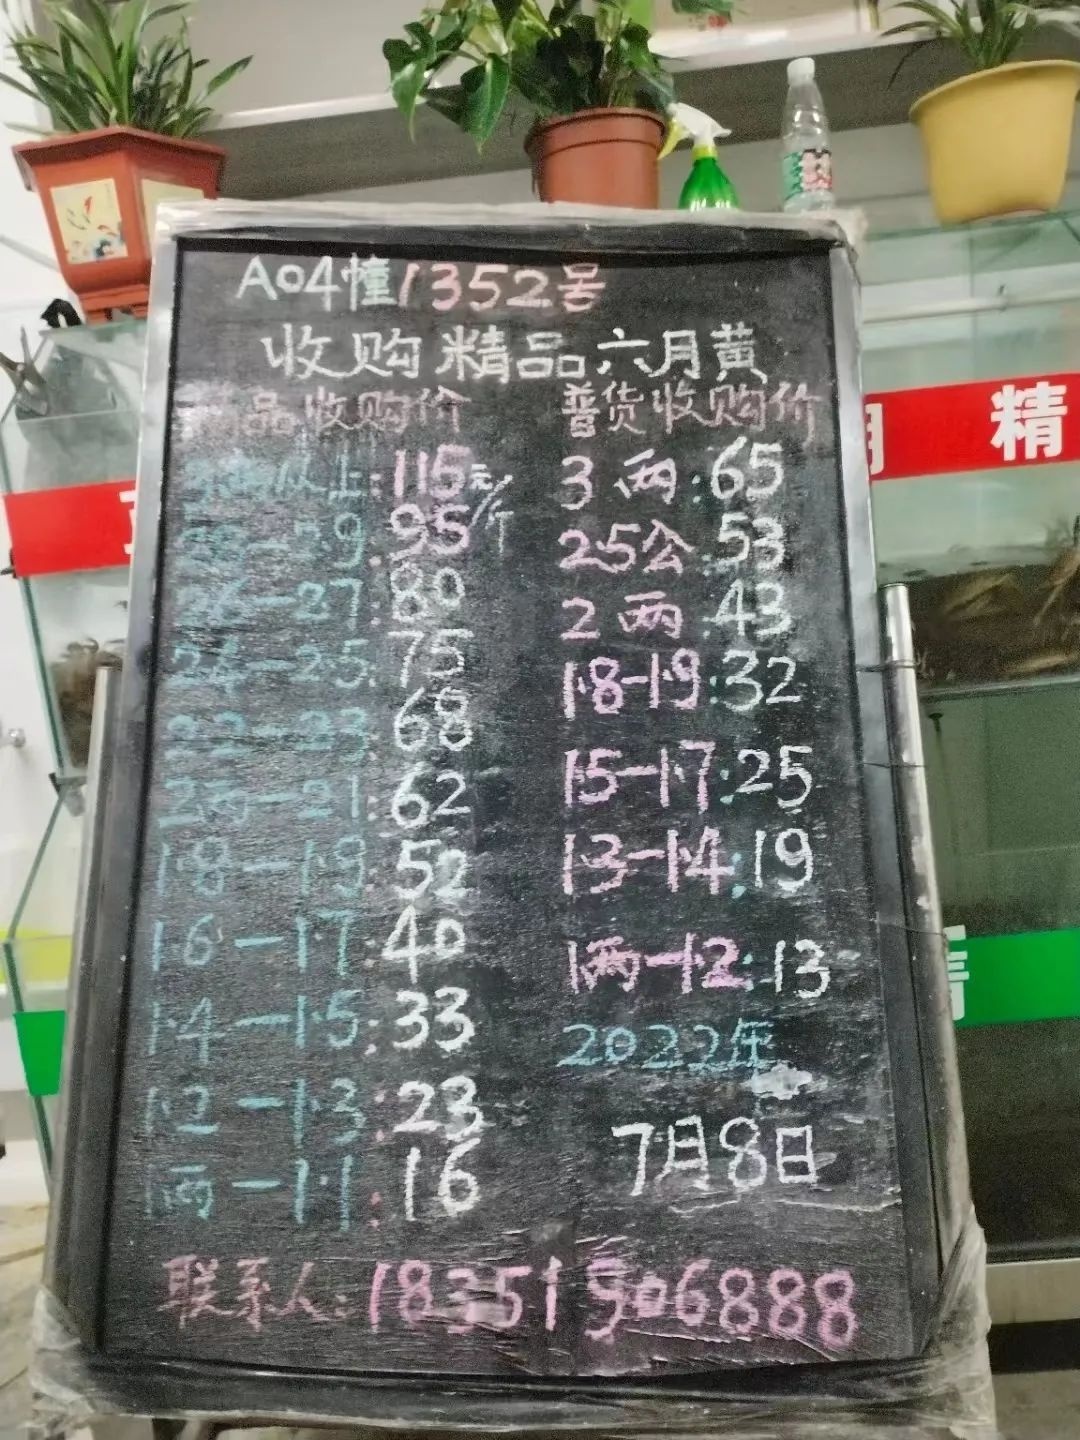 A04幢1352号
收购精品六月黄
品收购价
以上:115元/斤
28-29:95
26-27:80
24-25:75
22-23:68
2两-21:62
1.8-1.9:52
1.6-1.7:40
1.4-1.5:33
1.2-1.3:23
1两-1.1:16
普货收购价
3两:65
2.5公:53
2两:43
1.8-1.9:32
1.5-1.7:25
1.3-1.4:19
1两-1.2:13
2022年
7月8日
联系人:18351906888
精